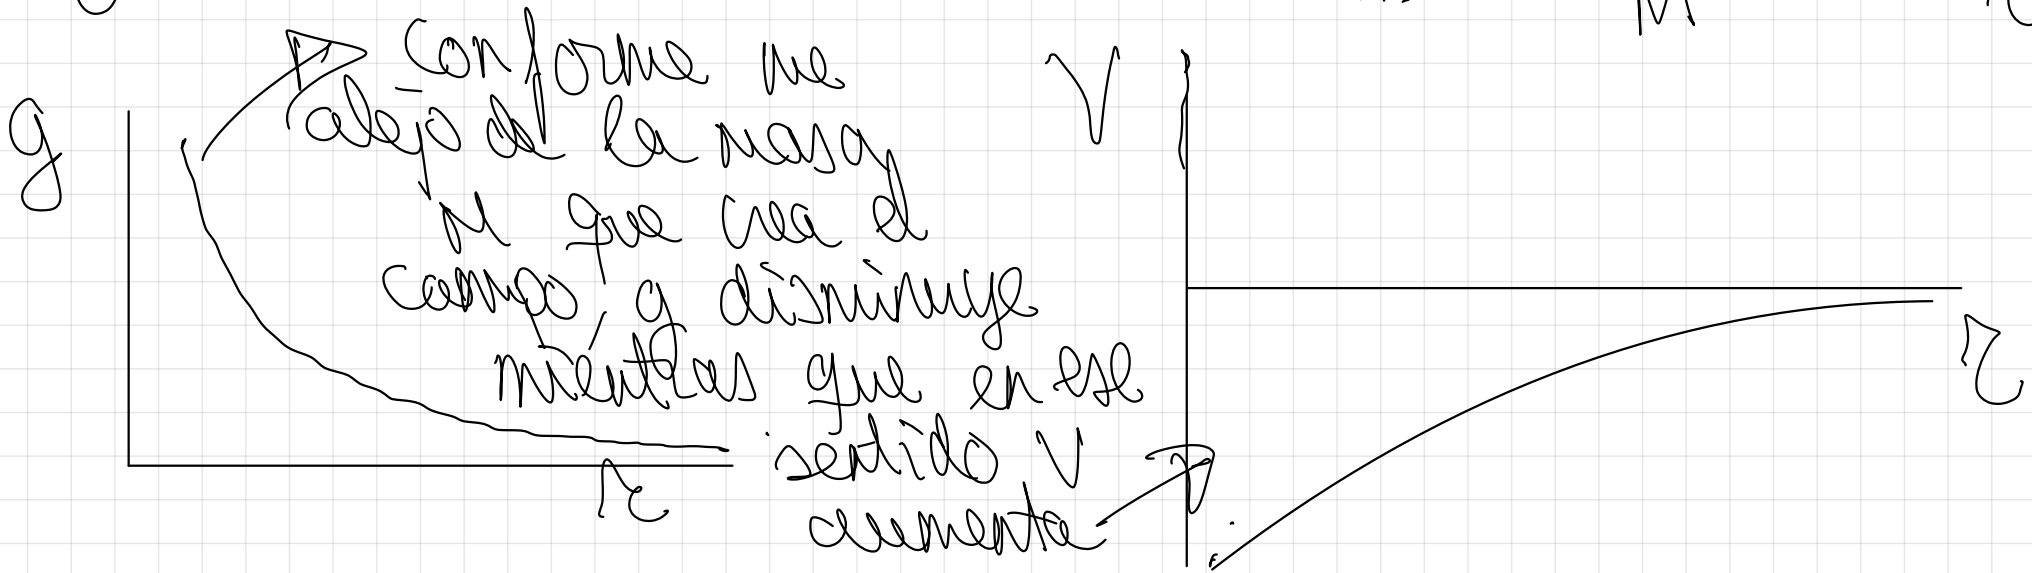 Conforme me
alejo de la masa
M que crea el
campo g disminuye
mientras que en ese
sentido V
aumenta
g
r
V
r